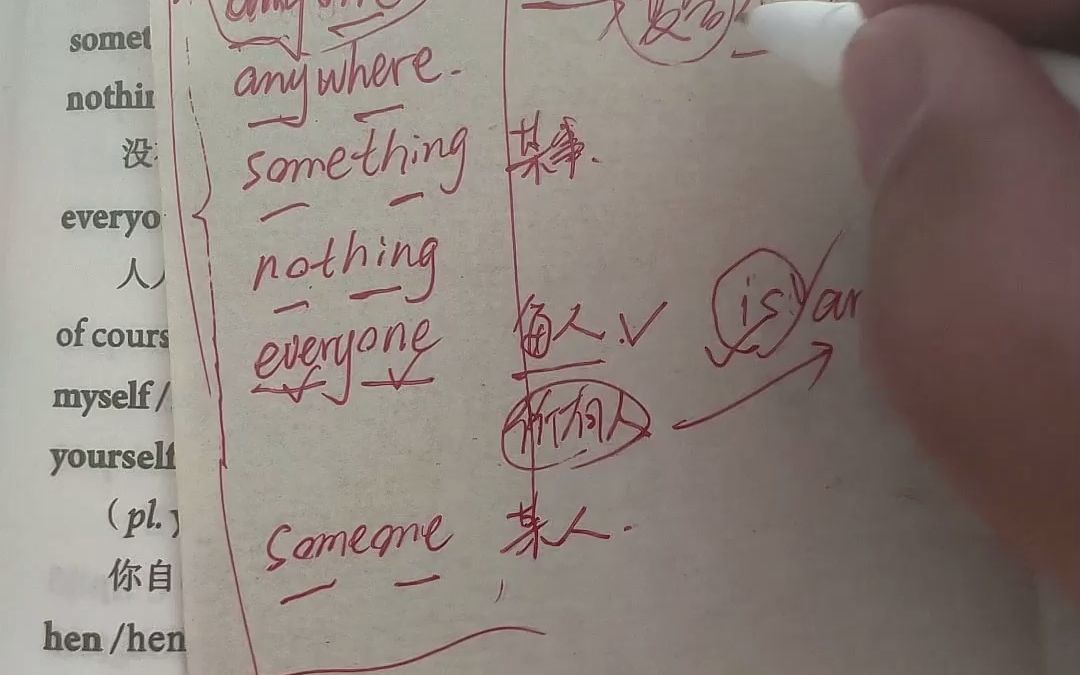 somet
nothin
没
everyo
人人
of cours
myself /
yourself
(pl. y
你自
hen /hen
anywhere.
something 某事.
nothing
everyone 每人. is / ar
所有人
someone 某人.